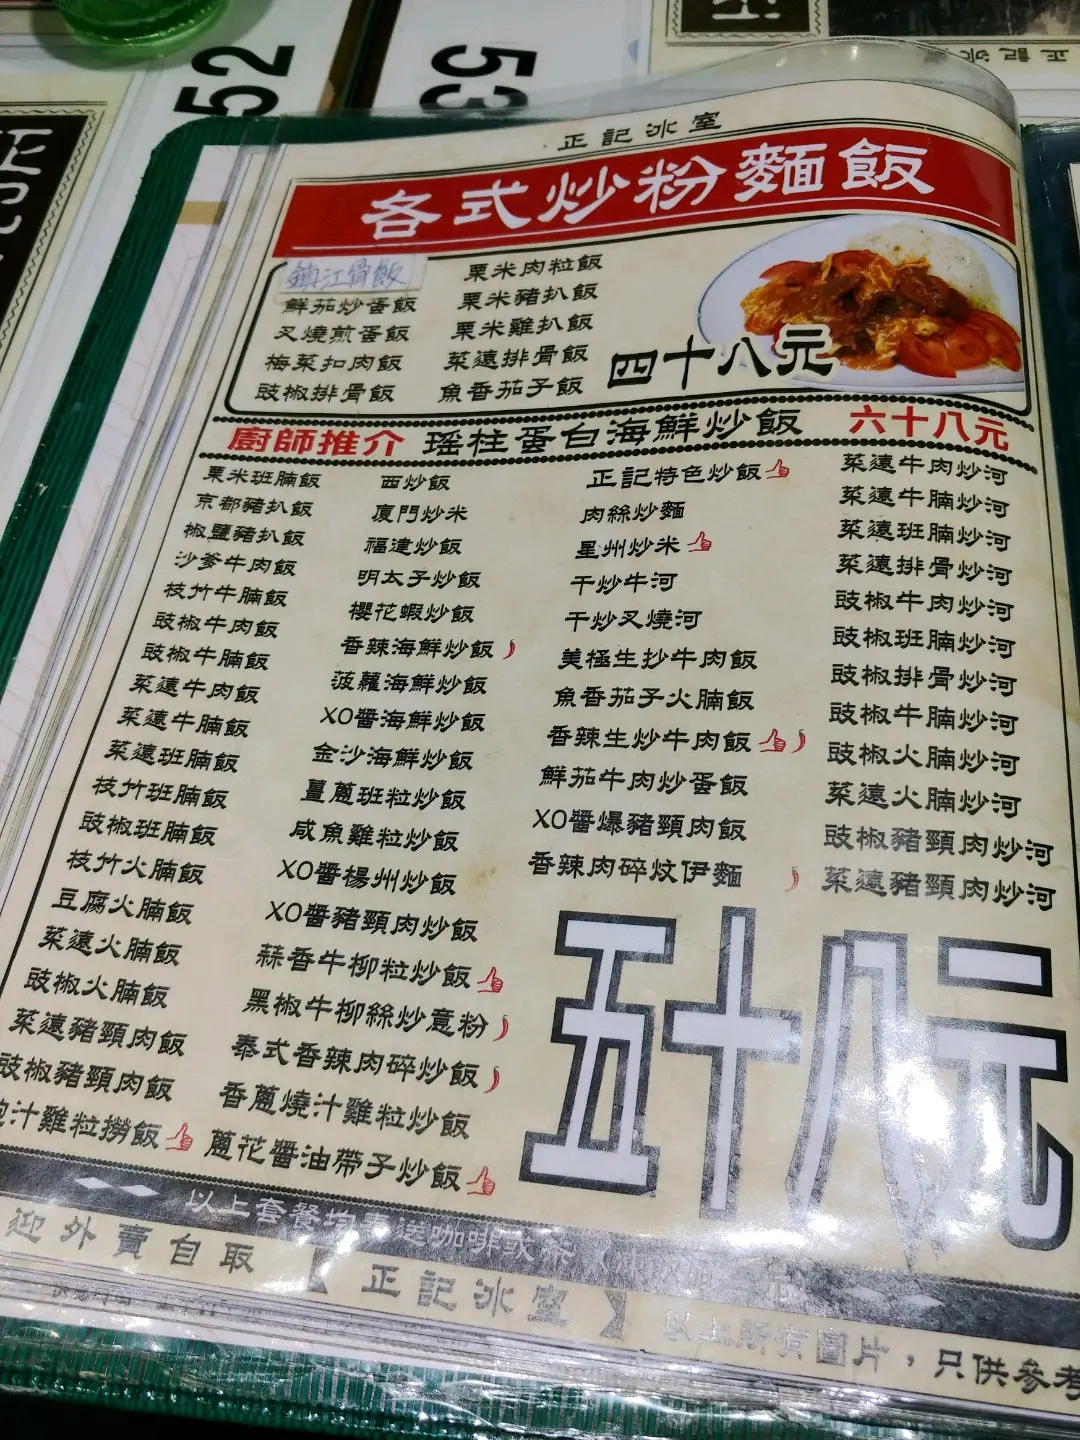 52
35
正記冰室
正記冰室
各式炒粉麵飯
鎮江骨飯
鮮茄炒蛋飯
叉燒煎蛋飯
梅菜扣肉飯
豉椒排骨飯
栗米肉粒飯
栗米豬扒飯
栗米雞扒飯
菜遠排骨飯
魚香茄子飯
四十八元
廚師推介 瑤柱蛋白海鮮炒飯 六十八元
栗米班腩飯
京都豬扒飯
椒鹽豬扒飯
沙爹牛肉飯
枝竹牛腩飯
豉椒牛肉飯
豉椒牛腩飯
菜遠牛肉飯
菜遠牛腩飯
菜遠班腩飯
枝竹班腩飯
豉椒班腩飯
枝竹火腩飯
豆腐火腩飯
菜遠火腩飯
豉椒火腩飯
菜遠豬頸肉飯
豉椒豬頸肉飯
汁雞粒撈飯
西炒飯
廈門炒米
福建炒飯
明太子炒飯
櫻花蝦炒飯
香辣海鮮炒飯
菠蘿海鮮炒飯
XO醬海鮮炒飯
金沙海鮮炒飯
薑蔥班粒炒飯
咸魚雞粒炒飯
XO醬楊州炒飯
XO醬豬頸肉炒飯
蒜香牛柳粒炒飯
黑椒牛柳絲炒意粉
泰式香辣肉碎炒飯
香蔥燒汁雞粒炒飯
蔥花醬油帶子炒飯
正記特色炒飯
肉絲炒麵
星州炒米
干炒牛河
干炒叉燒河
美極生抄牛肉飯
魚香茄子火腩飯
香辣生炒牛肉飯
鮮茄牛肉炒蛋飯
XO醬爆豬頸肉飯
香辣肉碎炆伊麵
菜遠牛肉炒河
菜遠牛腩炒河
菜遠班腩炒河
菜遠排骨炒河
豉椒牛肉炒河
豉椒班腩炒河
豉椒排骨炒河
豉椒牛腩炒河
豉椒火腩炒河
菜遠火腩炒河
豉椒豬頸肉炒河
菜遠豬頸肉炒河
五十八元
以上套餐均 送咖啡或茶
迎外賣自取 【正記冰室】 以上所有圖片，只供參考